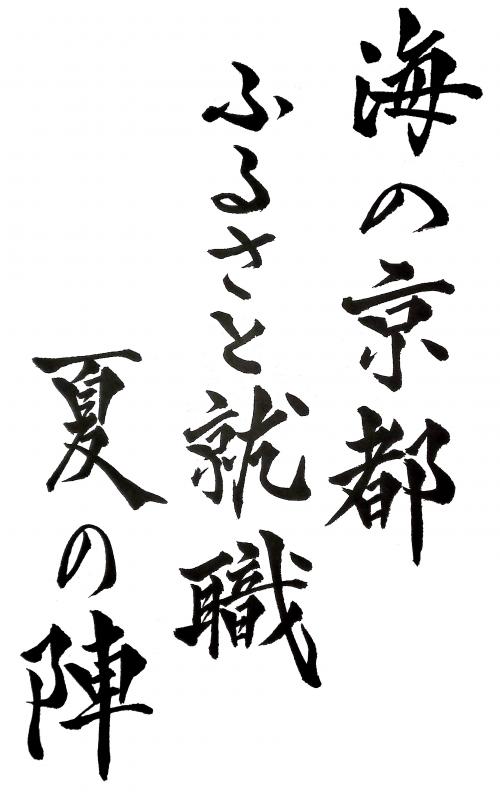 海の京都
ふるさと就職
夏の陣